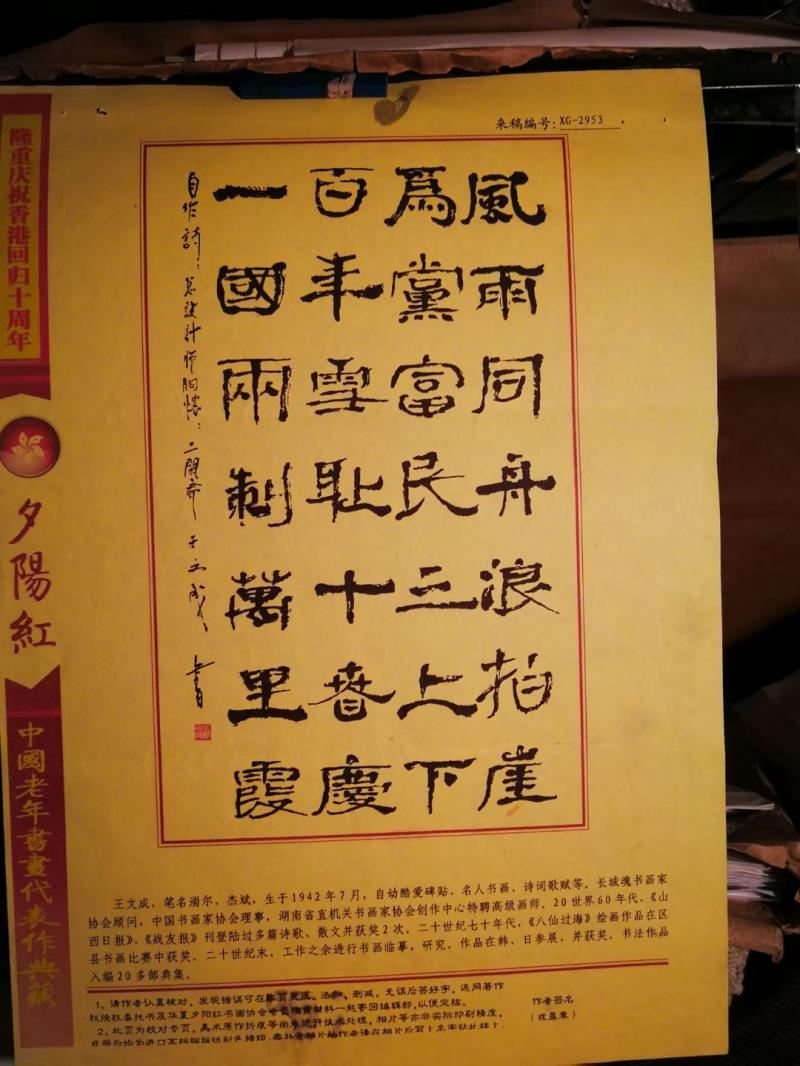 来稿编号：XG-2953
隆重庆祝香港回归十周年
夕陽紅
中國老年書畫代表作典藏
風雨同舟浪拍崖
為黨富民三上下
百年雪耻十春慶
一國兩制萬里霞
自作詩：总设计师胸怀：二闋 王文成 書
王文成，笔名湍尔、杰斌，生于1942年7月，自幼酷爱碑贴、名人书画、诗词歌赋等。长城魂书画家
协会顾问，中国书画家协会理事，湖南省直机关书画家协会创作中心特聘高级画师。20世界60年代，《山
西日报》、《战友报》刊登陆过多篇诗歌、散文并获奖2次。二十世纪七十年代，《八仙过海》绘画作品在区
县书画比赛中获奖。二十世纪末，工作之余进行书画临摹，研究。作品在韩、日参展，并获奖。书法作品
入编20多部典集。
1、请作者认真核对，发现错误可在本页更正、添加、删减。无误后签好字，连同著作
权授权委托书及华夏夕阳红书画协会会员 材料一起寄回编辑部，以便定稿。
2、此页为校对专页，美术原作折痕等尚未进行技术处理，相片等亦非实际印刷精度，
作者签名
（或盖章）